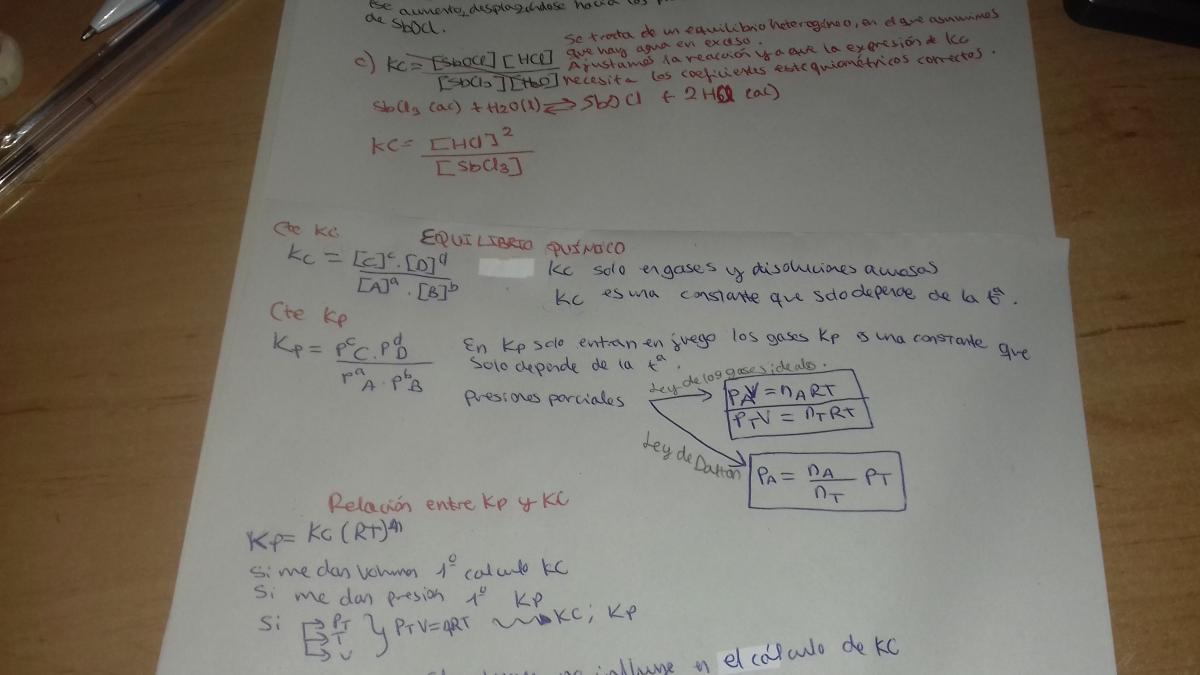 ese aumento, desplazándose hacia los
de SbOCl.
Se trata de un equilibrio heterogéneo, en el que asumimos
que hay agua en exceso.
c) KC = [SbOCl] [HCl] / [SbCl3] [H2O]
Ajustamos la reacción ya que la expresión de KC
necesita los coeficientes estequiométricos correctos
SbCl3 (ac) + H2O(l) ⇌ SbOCl + 2HCl (ac)
KC = [HCl]² / [SbCl3]
Cte KC
EQUILIBRIO QUÍMICO
KC = [C]^c · [D]^d / [A]^a · [B]^b
KC solo en gases y disoluciones acuosas
KC es una constante que solo depende de la tª.
Cte Kp
Kp = P^c C · P^d D / P^a A · P^b B
En Kp solo entran en juego los gases Kp es una constante que
solo depende de la tª.
Ley de los gases ideales.
presiones parciales
PAV = nART
PTV = nTRT
Ley de Dalton
PA = nA / nT PT
Relación entre Kp y KC
Kp = KC (RT)^Δn
Si me dan volumen 1º calculo KC
Si me dan presion 1º Kp
Si PT T V } PTV = nRT ⇝ KC; Kp
influye en el cálculo de KC